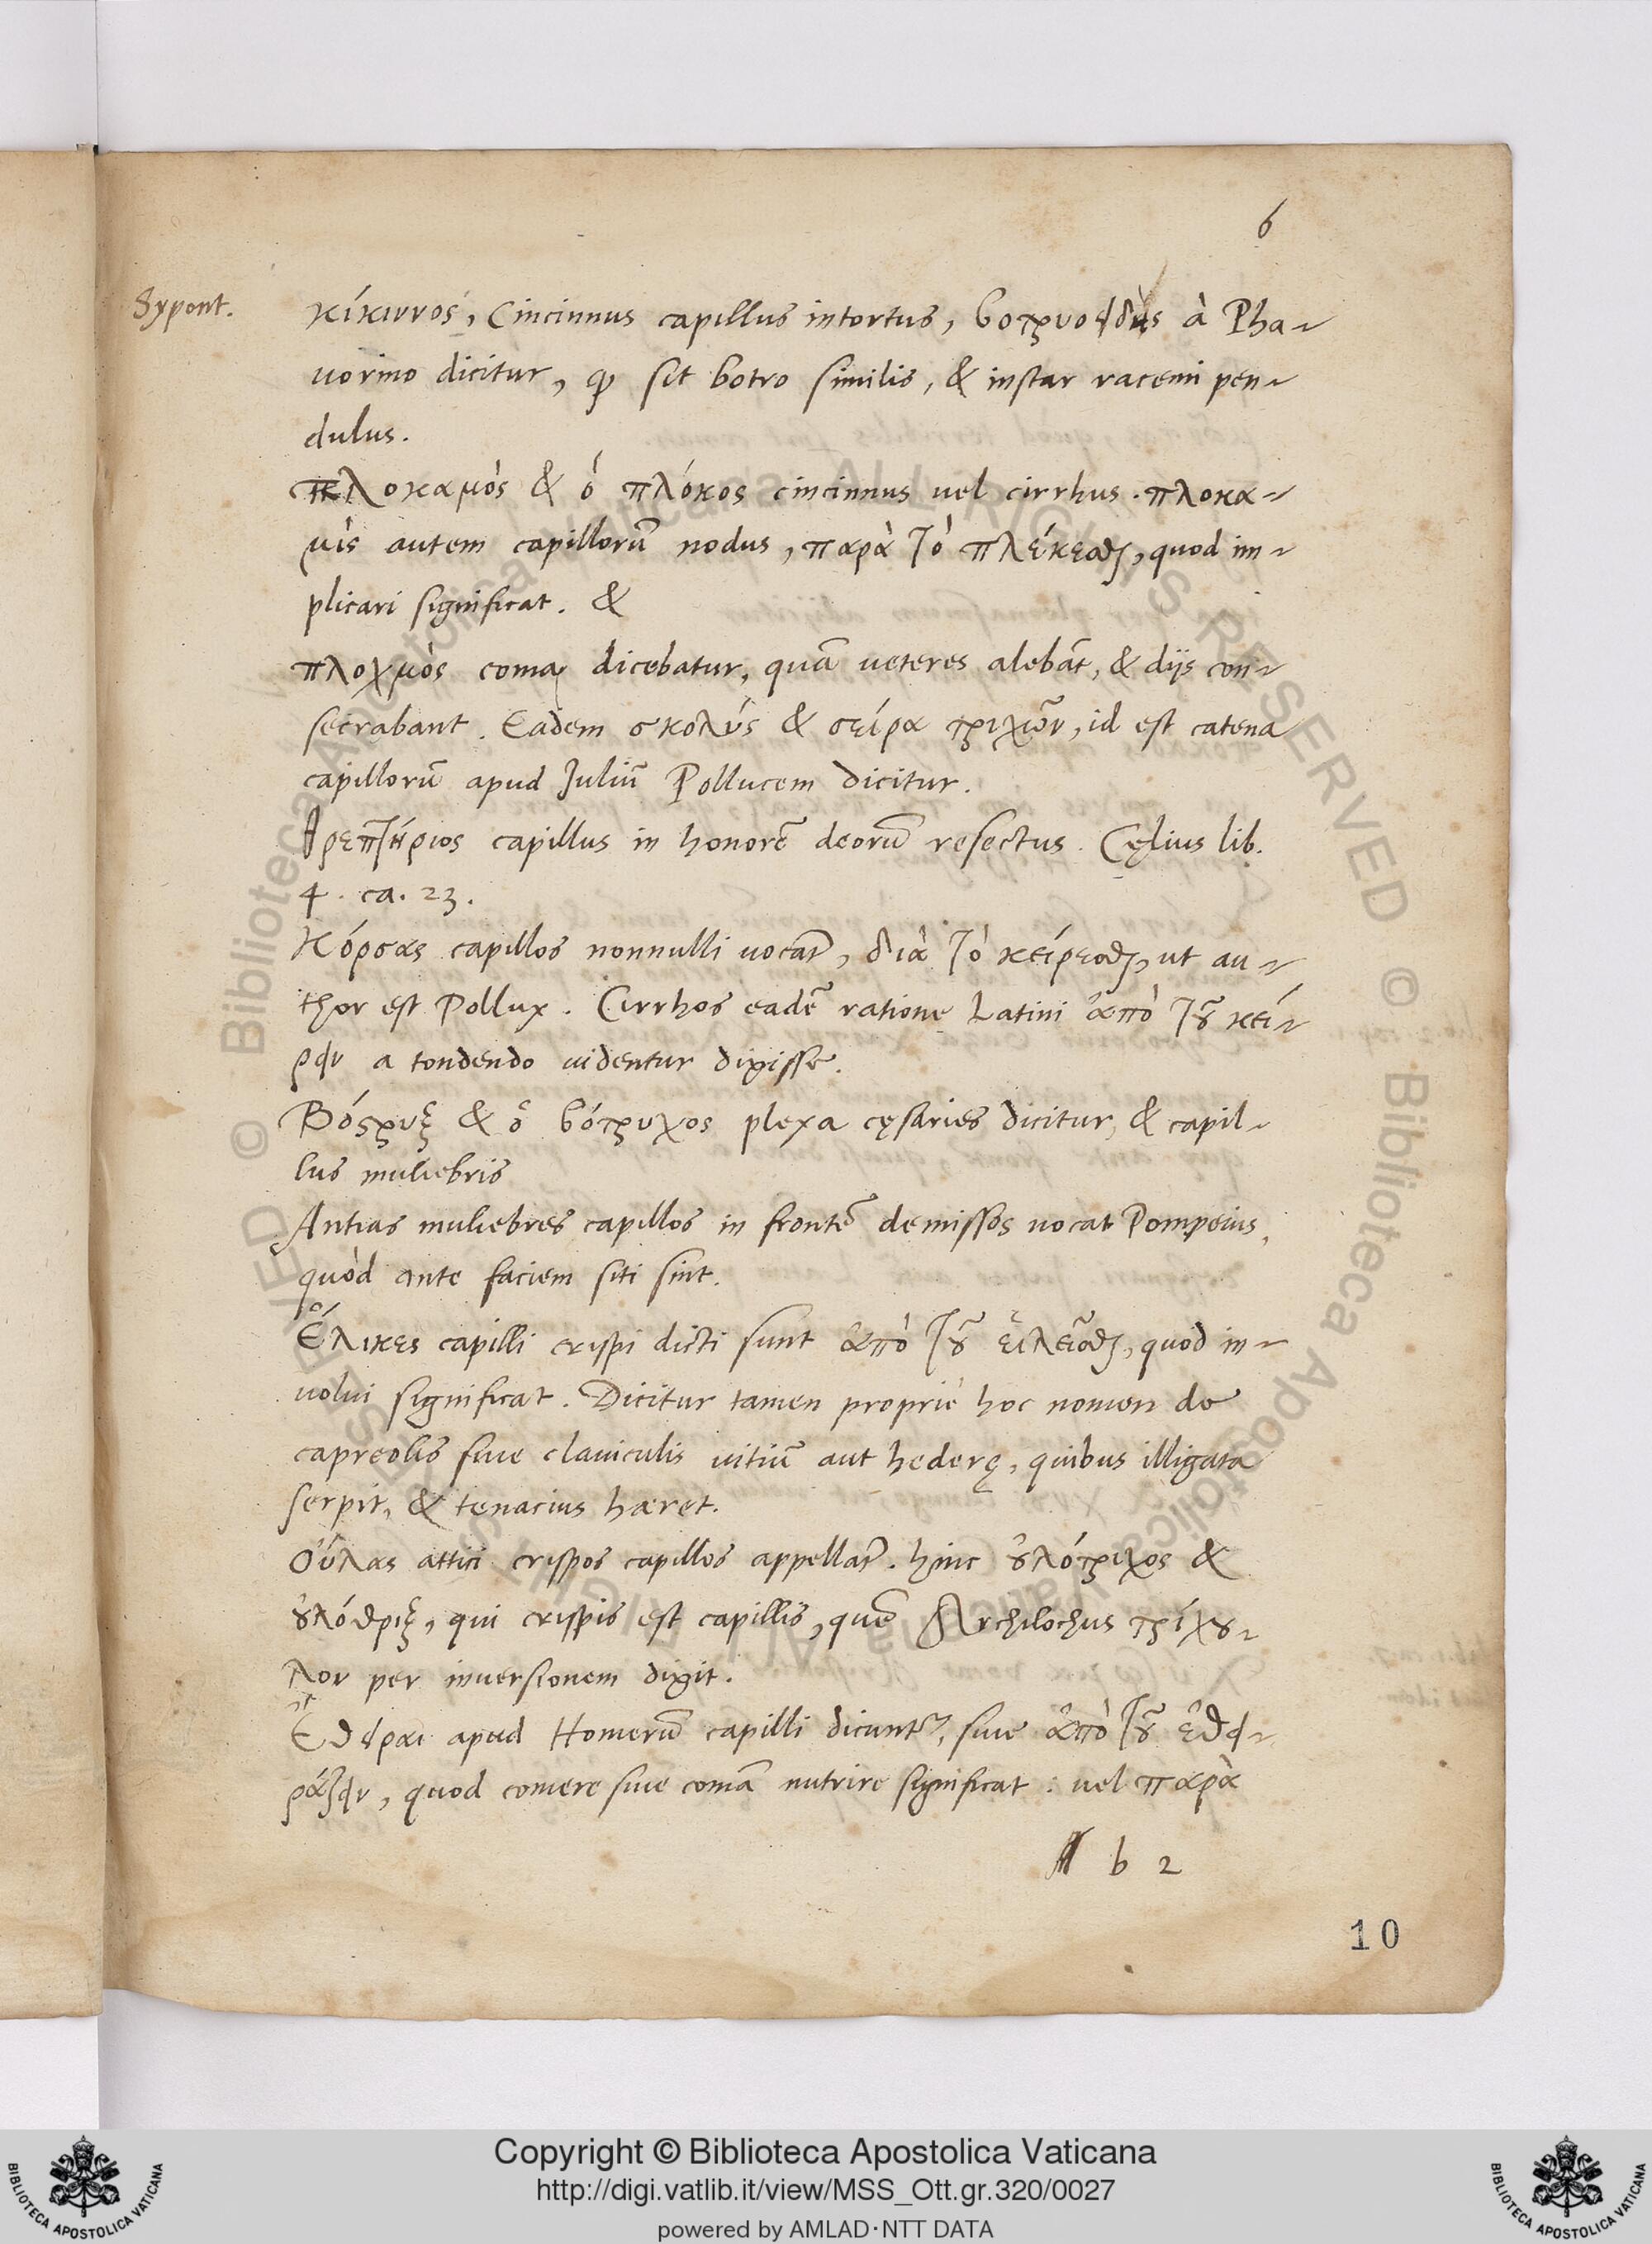 6
Sypont.
κίκιννος, Cincinnus capillus intortus, βοτρυοειδὴς à Pha-
uorino dicitur, ꝙ sit botro similis, & instar racemi pen-
dulus.
πλοκαμὸς & ὁ πλόκος cincinnus uel cirrhus. πλοκα-
μὶς autem capillorū nodus, παρὰ τὸ πλέκεσθαι, quod im-
plicari significat. &
πλοχμὸς coma dicebatur, quā ueteres alebāt, & dijs con-
secrabant. Eadem σκολύς & σείρα τριχῶν, id est catena
capillorū apud Juliū Pollucem dicitur.
θρεπτήριος capillus in honorē deorū resectus. Cęlius lib.
4. ca. 23.
Κόρσας capillos nonnulli uocāt, διὰ τὸ κείρεσθαι, ut au-
thor est Pollux. Cirrhos eadē ratione Latini ἀπὸ τοῦ κεί-
ρειν a tondendo uidentur dixisse.
Βόστρυξ & ὁ βότρυχος plexa cęsaries dicitur, & capil-
lus muliebris
Antias muliebres capillos in frontē demissos uocat Pompeius,
quòd ante faciem siti sint.
Ἕλικες capilli crispi dicti sunt ἀπὸ τοῦ εἱλεῖσθαι, quod in-
uolui significat. Dicitur tamen propriè hoc nomen de
capreolis siue clauiculis uitiū aut hederę, quibus illigata
serpit, & tenacius hæret.
Οὔλας attici crispos capillos appellāt. hinc οὐλότριχος &
οὐλόθριξ, qui crispis est capillis, quē Archilochus τρίχου-
λον per inuersionem dixit.
Ἔθειραι apud Homerū capilli dicunt᷑, siue ἀπὸ τοῦ ἐθει-
ράζειν, quod comere siue comā nutrire significat: uel παρὰ
b 2
10
© Biblioteca Apostolica Vaticana ALL RIGHTS RESERVED
© Biblioteca Apostolica Vaticana ALL RIGHTS RESERVED
BIBLIOTECA APOSTOLICA VATICANA
Copyright © Biblioteca Apostolica Vaticana
http://digi.vatlib.it/view/MSS_Ott.gr.320/0027
powered by AMLAD·NTT DATA
BIBLIOTECA APOSTOLICA VATICANA